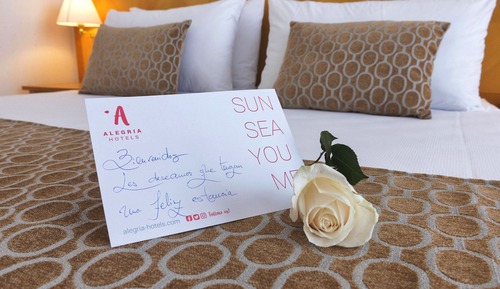 ALEGRIA
HOTELS
SUN
SEA
YOU
ME
Bienvenidos
Les deseamos que tengan
una feliz estancia
alegria-hotels.com
follow us!